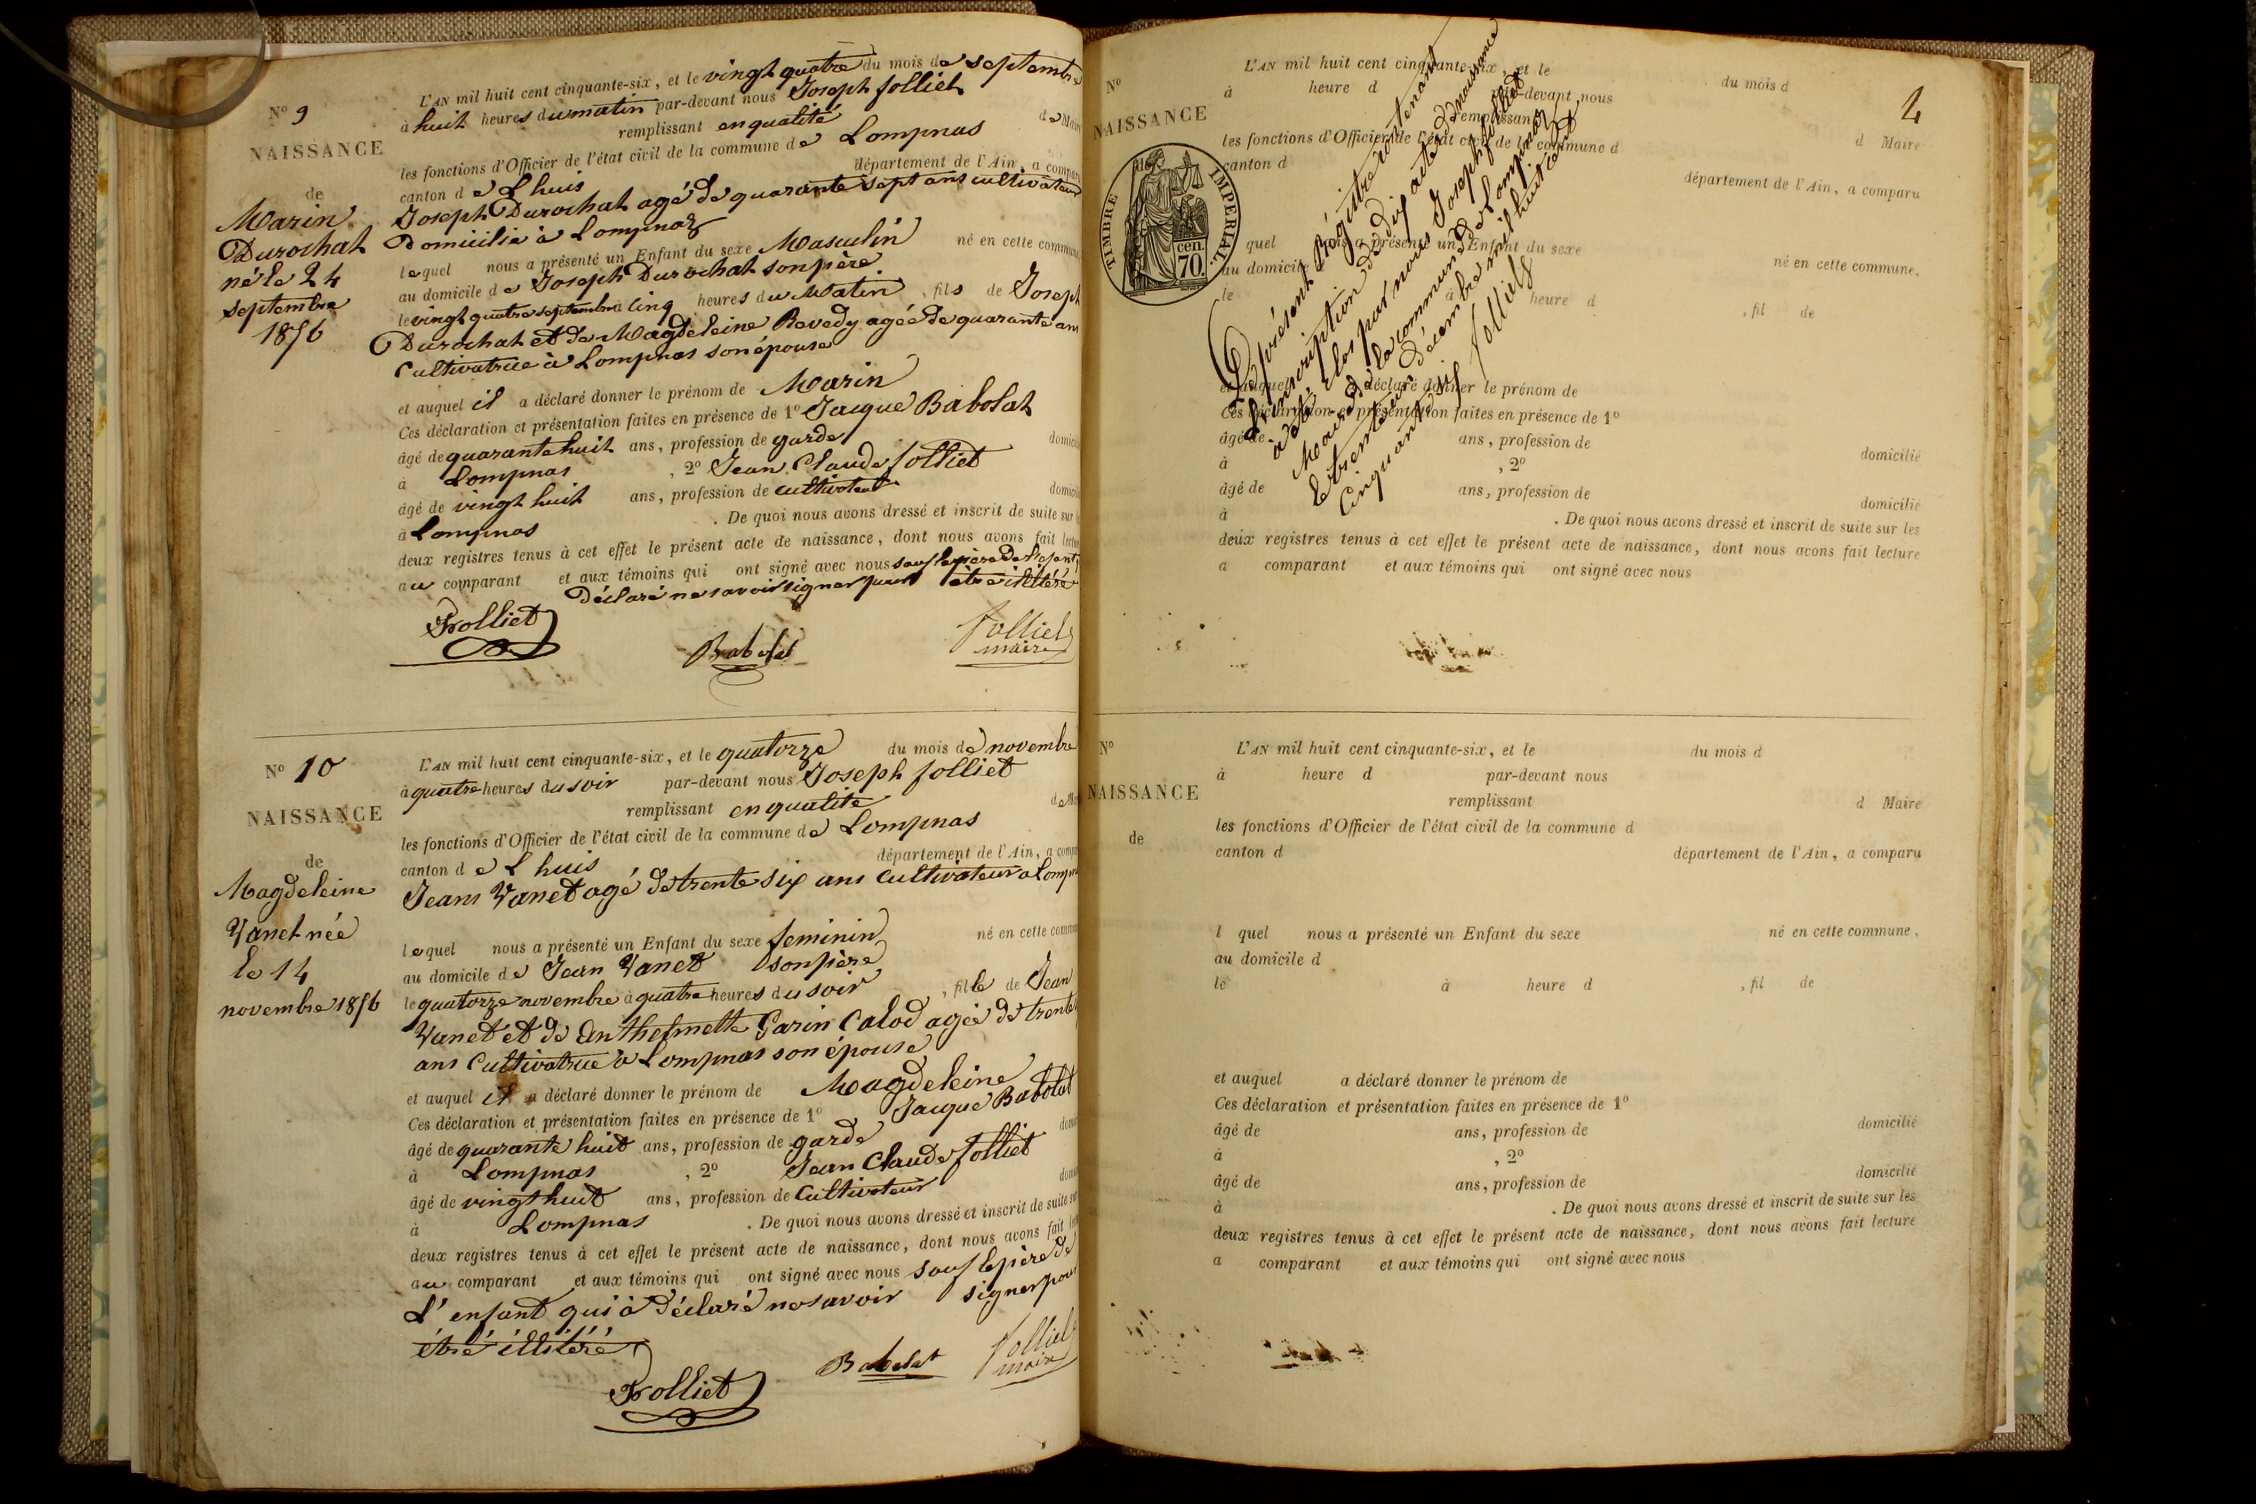 N° 9
NAISSANCE
de
Marin
Durochat
né le 24
septembre
1856
L'AN mil huit cent cinquante-six, et le vingt quatre du mois de septembre
à huit heures du matin par-devant nous Joseph folliet
remplissant en qualité de Maire
les fonctions d'Officier de l'état civil de la commune de Lompnas
canton de Lhuis département de l'Ain, a comparu
Joseph Durochat agé de quarante sept ans cultivateur
Domicilié à Lompnaz
lequel nous a présenté un Enfant du sexe Masculin né en cette commune,
au domicile de Joseph Durochat son père
le vingt quatre septembre à cinq heures du Matin, fils de Joseph
Durochat et de Magdeleine Revedy agée de quarante ans
Cultivatrice à Lompnas son épouse
et auquel il a déclaré donner le prénom de Marin
Ces déclaration et présentation faites en présence de 1° Jacque Babolat
âgé de quarante huit ans, profession de garde domicilié
à Lompnas, 2° Jean Claude folliet
âgé de vingt huit ans, profession de cultivateur domicilié
à Lompnas. De quoi nous avons dressé et inscrit de suite sur
deux registres tenus à cet effet le présent acte de naissance, dont nous avons fait lecture
au comparant et aux témoins qui ont signé avec nous sauf le père de l'enfant
Déclaré ne savoir signer pour être illitéré
folliet
Babolat
folliet
maire
N° 10
NAISSANCE
de
Magdeleine
Vanet née
le 14
novembre 1856
L'AN mil huit cent cinquante-six, et le quatorze du mois de novembre
à quatre heures du soir par-devant nous Joseph folliet
remplissant en qualité de Maire
les fonctions d'Officier de l'état civil de la commune de Lompnas
canton de Lhuis département de l'Ain, a comparu
Jean Vanet agé de trente six ans cultivateur a Lompnas
lequel nous a présenté un Enfant du sexe feminin né en cette commune
au domicile de Jean Vanet son père
le quatorze novembre à quatre heures du soir, fille de Jean
Vanet et de Anthelmette Garin Calod agée de trente
ans Cultivatrice à Lompnas son épouse
et auquel il a déclaré donner le prénom de Magdeleine
Ces déclaration et présentation faites en présence de 1° Jacque Babolat
âgé de quarante huit ans, profession de garde
à Lompnas, 2° Jean Claude folliet
âgé de vingt huit ans, profession de Cultivateur
à Lompnas. De quoi nous avons dressé et inscrit de suite sur
deux registres tenus à cet effet le présent acte de naissance, dont nous avons fait
au comparant et aux témoins qui ont signé avec nous sauf le père de
L'enfant qui à déclaré ne savoir signer pour
être illitéré
folliet
Babolat
folliet
maire
4
N°
NAISSANCE
de
TIMBRE IMPERIAL.
cen.
70.
L'AN mil huit cent cinquante-six, et le du mois d
à heure d par-devant nous
remplissant d Maire
les fonctions d'Officier de l'état civil de la commune d
canton d département de l'Ain, a comparu
l quel nous a présenté un Enfant du sexe né en cette commune,
au domicile
le à heure d, fil de
et auquel a déclaré donner le prénom de
Ces déclaration et présentation faites en présence de 1°
âgé de ans, profession de domicilié
à, 2°
âgé de ans, profession de domicilié
à. De quoi nous avons dressé et inscrit de suite sur les
deux registres tenus à cet effet le présent acte de naissance, dont nous avons fait lecture
a comparant et aux témoins qui ont signé avec nous
Le présent Régistre contenant
L'inscription de dix actes de naissance
à été clos par nous Joseph folliet
Maire de la commune de Lompnaz
le trente un décembre mil huit cent
Cinquante six
folliet
N°
NAISSANCE
de
L'AN mil huit cent cinquante-six, et le du mois d
à heure d par-devant nous
remplissant d Maire
les fonctions d'Officier de l'état civil de la commune d
canton d département de l'Ain, a comparu
l quel nous a présenté un Enfant du sexe né en cette commune,
au domicile d
le à heure d, fil de
et auquel a déclaré donner le prénom de
Ces déclaration et présentation faites en présence de 1°
âgé de ans, profession de domicilié
à, 2°
âgé de ans, profession de domicilié
à. De quoi nous avons dressé et inscrit de suite sur les
deux registres tenus à cet effet le présent acte de naissance, dont nous avons fait lecture
a comparant et aux témoins qui ont signé avec nous